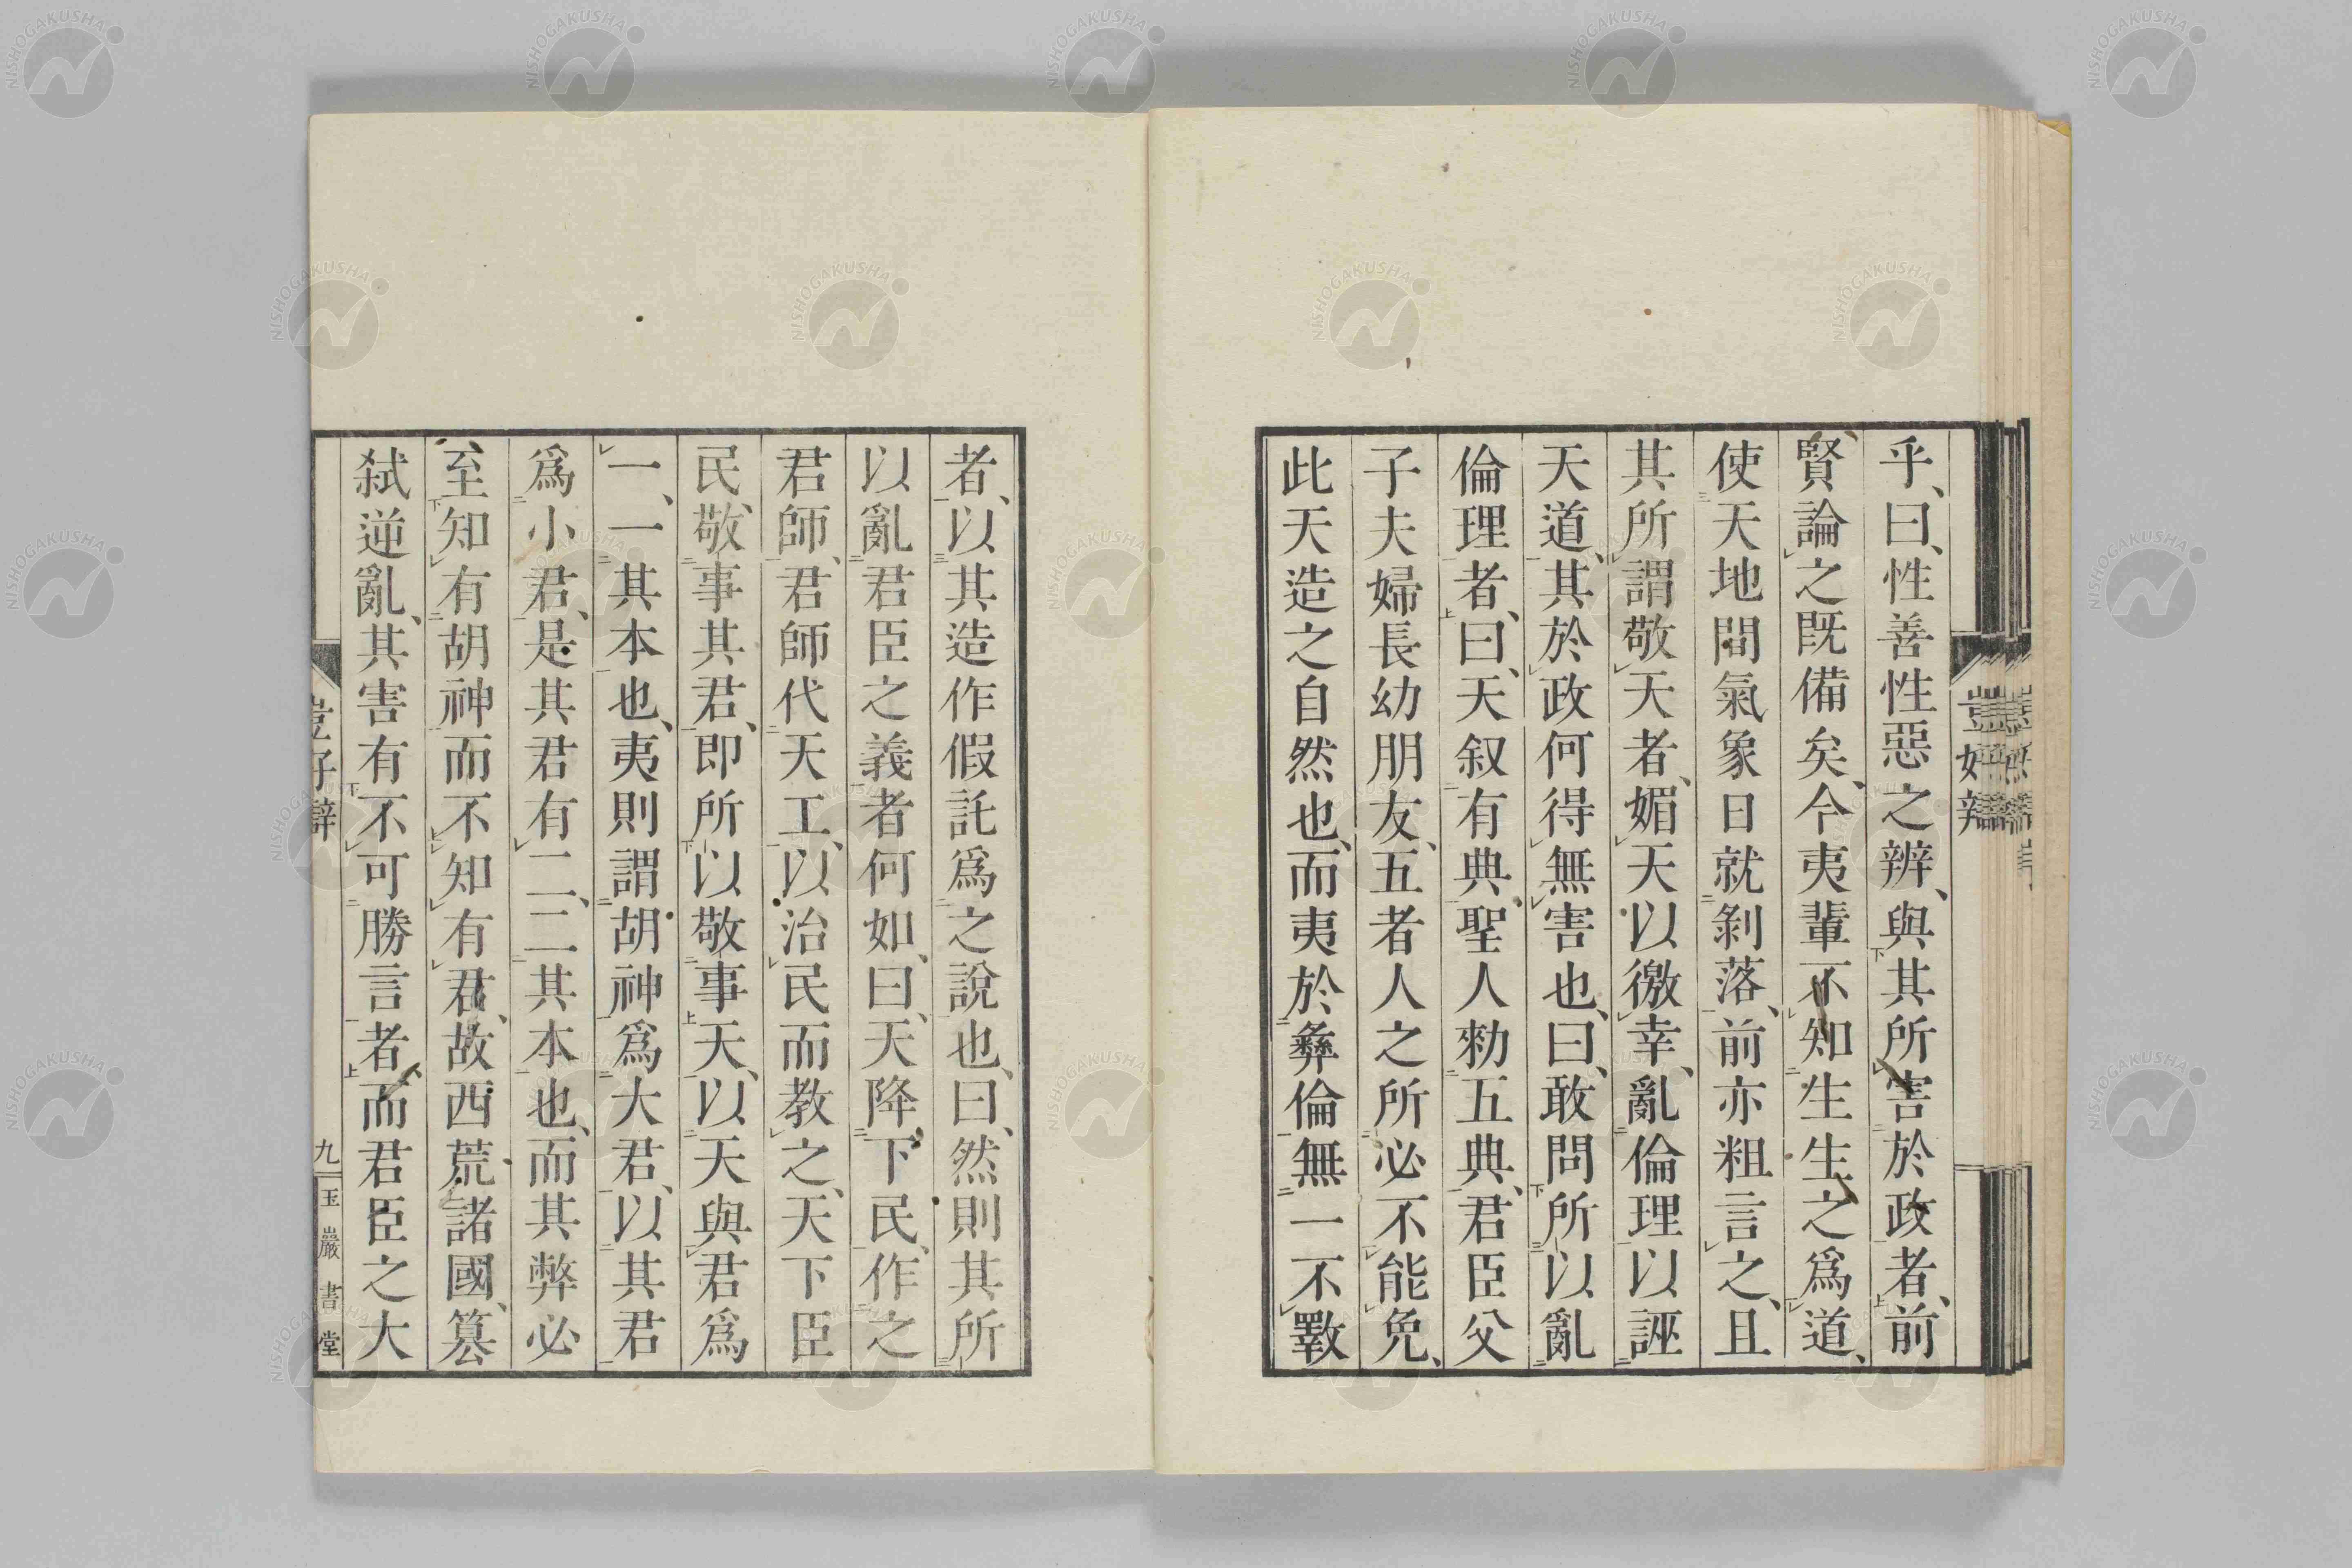 乎、曰、性善性惡之辨、與其所害於政者、前
賢論之既備矣、今夷輩不知生生之爲道、
使天地間氣象日就剝落、前亦粗言之、且
其所謂敬天者、媚天以徼幸、亂倫理以誣
天道、其於政何得無害也、曰、敢問所以亂
倫理者、曰、天叙有典、聖人勑五典、君臣父
子夫婦長幼朋友、五者人之所必不能免、
此天造之自然也、而夷於彝倫無一不斁
者、以其造作假託爲之說也、曰、然則其所
以亂君臣之義者何如、曰、天降下民、作之
君師、君師代天工、以治民而教之、天下臣
民、敬事其君、即所以敬事天、以天與君爲
一、一其本也、夷則謂胡神爲大君、以其君
爲小君、是其君有二、二其本也、而其弊必
至知有胡神而不知有君、故西荒諸國、簒
弑逆亂、其害有不可勝言者、而君臣之大
豈好辯
九
玉巖書堂
NISHOGAKUSHA